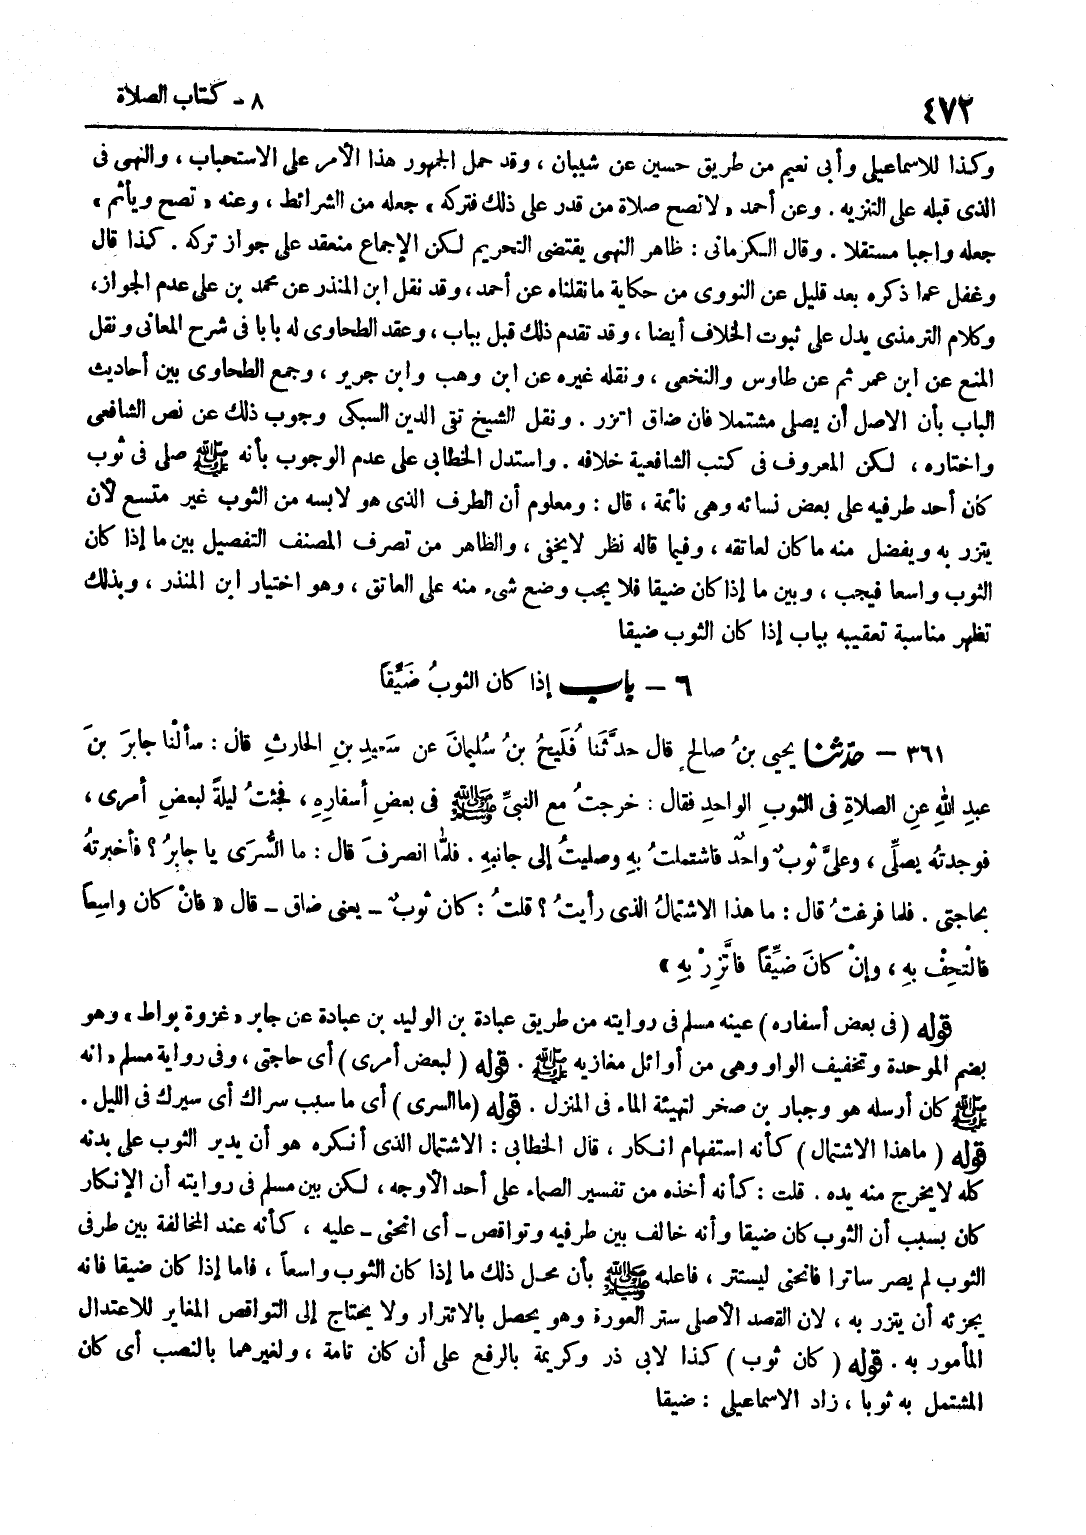 ٤٧٢
٨ - كتاب الصلاة
وكذا للاسماعيلى وأبى نعيم من طريق حسين عن شيبان ، وقد حمل الجمهور هذا الأمر على الاستحباب ، والنهى فى
الذى قبله على التنزيه . وعن أحمد « لاتصح صلاة من قدر على ذلك فتركه » جعله من الشرائط ، وعنه « تصح ويأثم »
جعله واجبا مستقلا . وقال الكرمانى : ظاهر النهى يقتضى التحريم لكن الإجماع منعقد على جواز تركه . كذا قال
وغفل عما ذكره بعد قليل عن النووى من حكاية ما نقلناه عن أحمد ، وقد نقل ابن المنذر عن محمد بن على عدم الجواز ،
وكلام الترمذى يدل على ثبوت الخلاف أيضا ، وقد تقدم ذلك قبل بباب ، وعقد الطحاوى له بابا فى شرح المعانى ونقل
المنع عن ابن عمر ثم عن طاوس والنخعى ، ونقله غيره عن ابن وهب وابن جرير ، وجمع الطحاوى بين أحاديث
الباب بأن الاصل أن يصلى مشتملا فان ضاق اتزر . ونقل الشيخ تقى الدين السبكى وجوب ذلك عن نص الشافعى
واختاره ، لكن المعروف فى كتب الشافعية خلافه . واستدل الخطابى على عدم الوجوب بأنه ﷺ صلى فى ثوب
كان أحد طرفيه على بعض نسائه وهى نائمة ، قال : ومعلوم أن الطرف الذى هو لابسه من الثوب غير متسع لأن
يتزر به ويفضل منه ما كان لعاتقه ، وفيما قاله نظر لايخفى ، والظاهر من تصرف المصنف التفصيل بين ما إذا كان
الثوب واسعا فيجب ، وبين ما إذا كان ضيقا فلا يجب وضع شىء منه على العاتق ، وهو اختيار ابن المنذر ، وبذلك
تظهر مناسبة تعقيبه بباب إذا كان الثوب ضيقا
٦ - باب إذا كان الثوبُ ضَيِّقاً
٣٦١ - حدّثنا يحيى بنُ صالحٍ قال حدَّثَنا فُلَيحُ بنُ سُليمانَ عن سَعيدِ بنِ الحارثِ قال : سألْنا جابرَ بنَ
عبدِ اللهِ عنِ الصلاةِ فى الثوبِ الواحدِ فقال : خرجتُ مع النبىِّ ﷺ فى بعضِ أسفارِهِ ، فجئتُ ليلةً لبعضِ أمرى ،
فوجدتهُ يصلِّى ، وعلىَّ ثوبٌ واحدٌ فاشتملتُ بهِ وصليتُ إلى جانبهِ . فلمَّا انصرفَ قال : ما السُّرَى يا جابرُ ؟ فأخبرتهُ
بحاجتى . فلما فرغتُ قال : ما هذا الاشتمالُ الذى رأيتُ ؟ قلتُ : كان ثوبٌ - يعنى ضاق - قال « فانْ كان واسِعاً
فالْتحِفْ بهِ ، وإنْ كانَ ضيِّقاً فاتَّزِرْ بهِ »
قوله ( فى بعض أسفاره ) عينه مسلم فى روايته من طريق عبادة بن الوليد بن عبادة عن جابر « غزوة بواط » وهو
بضم الموحدة وتخفيف الواو وهى من أوائل مغازيه ﷺ . قوله ( لبعض أمرى ) أى حاجتى ، وفى رواية مسلم « انه
ﷺ كان أرسله هو وجبار بن صخر لتهيئة الماء فى المنزل . قوله ( ماالسرى ) أى ما سبب سراك أى سيرك فى الليل .
قوله ( ماهذا الاشتمال ) كأنه استفهام انكار ، قال الخطابى : الاشتمال الذى أنكره هو أن يدير الثوب على بدنه
كله لايخرج منه يده . قلت : كأنه أخذه من تفسير الصماء على أحد الأوجه ، لكن بين مسلم فى روايته أن الإنكار
كان بسبب أن الثوب كان ضيقا وأنه خالف بين طرفيه وتواقص - أى انحنى - عليه ، كأنه عند المخالفة بين طرفى
الثوب لم يصر ساترا فانحنى ليستتر ، فاعلمه ﷺ بأن محل ذلك ما إذا كان الثوب واسعاً ، فاما إذا كان ضيقا فانه
يجزئه أن يتزر به ، لان القصد الأصلى ستر العورة وهو يحصل بالائتزار ولا يحتاج إلى التواقص المغاير للاعتدال
المأمور به . قوله ( كان ثوب ) كذا لابى ذر وكريمة بالرفع على أن كان تامة ، ولغيرهما بالنصب أى كان
المشتمل به ثوبا ، زاد الاسماعيلى : ضيقا